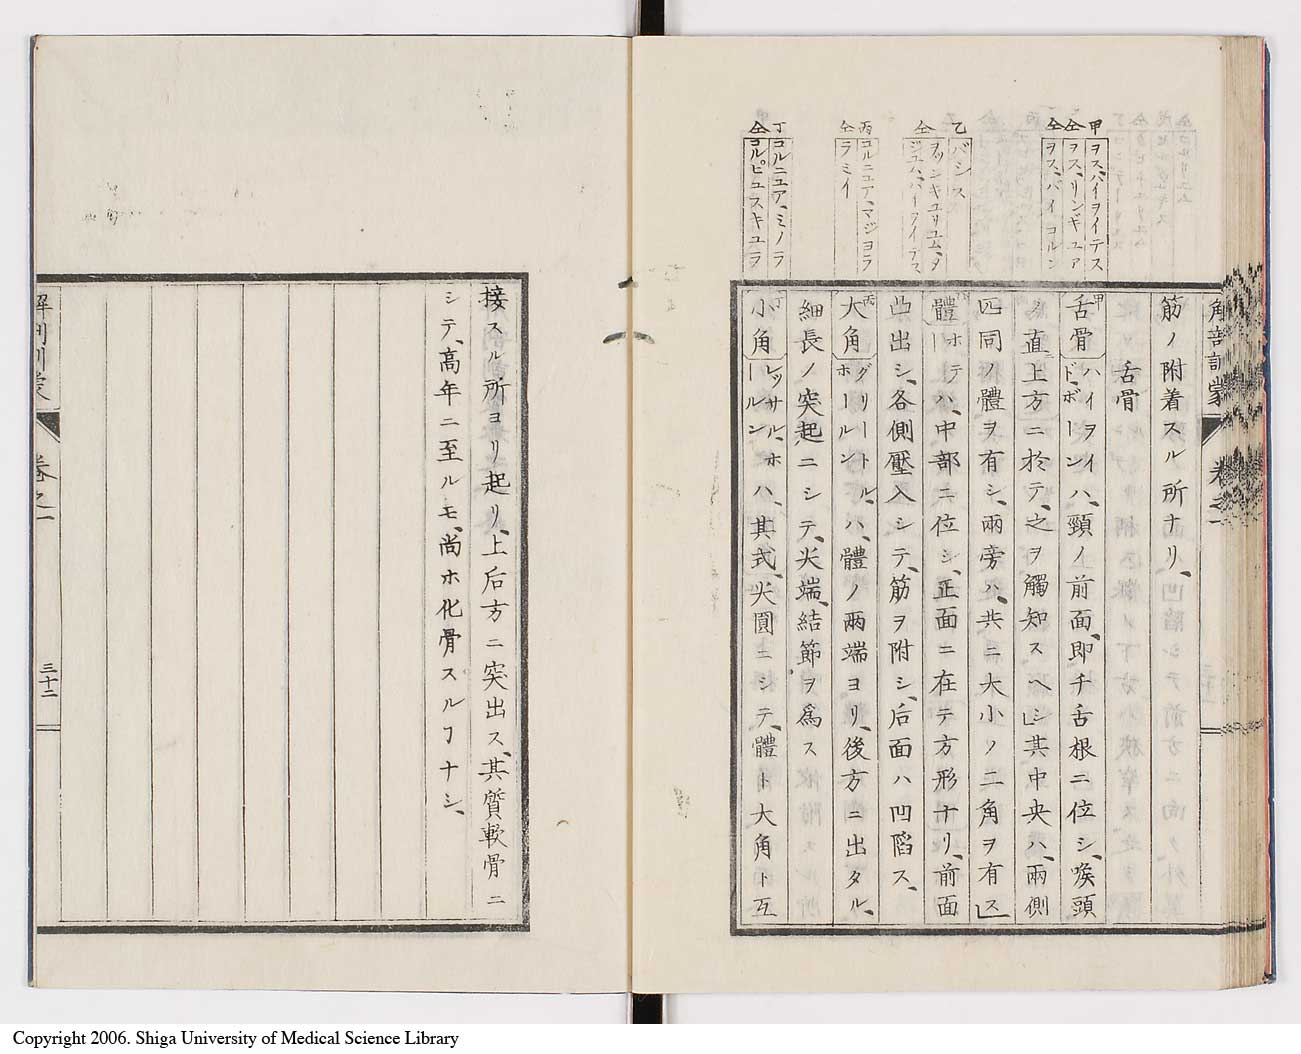 甲 ヲス、バイヲイテス
仝 ヲス、リンギュア
仝 ヲス、バイコルン
乙 バシス
仝 ヲッシキュリユム、タ
ジユム、バイヲイテス
丙 コルニュア、マジョラ
仝 ラミイ
丁 コルニュア、ミノラ
仝 コルピュスキュラ
解剖訓蒙 卷之二
筋ノ附着スル所ナリ、
舌骨
甲 舌骨 ハイヲイド、ボーン ハ、頸ノ前面、即チ舌根ニ位シ、喉頭
ノ直上方ニ於テ、之ヲ觸知スヘシ」其中央ハ、兩側
匹同ノ體ヲ有シ、兩旁ハ、共ニ大小ノ二角ヲ有ス」
體 ホテー ハ、中部ニ位シ、正面ニ在テ方形ナリ、前面
凸出シ、各側壓入シテ、筋ヲ附シ、后面ハ凹陷ス、
丙 大角 グリートル、ホールン ハ、體ノ兩端ヨリ、後方ニ出タル、
細長ノ突起ニシテ、尖端、結節ヲ爲ス
丁 小角 レッサル、ホールン ハ、其式、尖圓ニシテ、體ト大角ト互
接スル所ヨリ起リ、上后方ニ突出ス、其質軟骨ニ
シテ、高年ニ至ルモ、尚ホ化骨スルヿナシ、
解剖訓蒙 卷之二 三十二
Copyright 2006. Shiga University of Medical Science Library